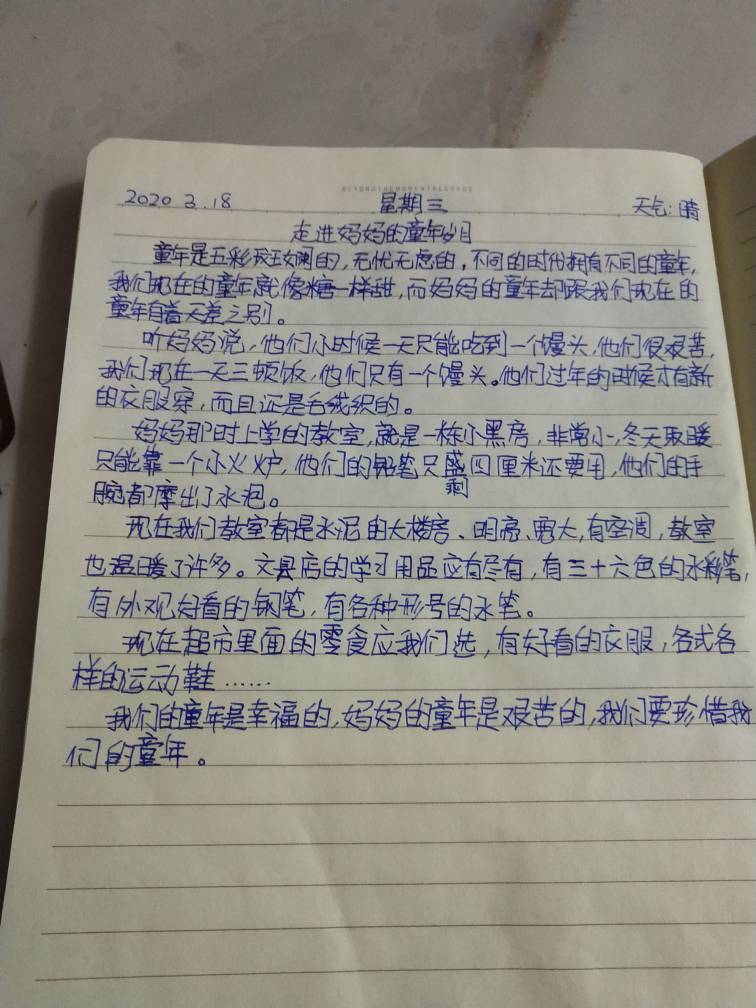 BEYONDTHEMOMENTRECORDS
2020 3.18 星期三 天气:晴
走进妈妈的童年岁月
童年是五彩斑斓的,无忧无虑的,不同的时代拥有不同的童年,
我们现在的童年就像糖一样甜,而妈妈的童年却跟我们现在的
童年有着天差之别。
听妈妈说,他们小时候一天只能吃到一个馒头,他们很艰苦,
我们现在一天三顿饭,他们只有一个馒头。他们过年的时候才有新
的衣服穿,而且还是毛线织的。
妈妈那时上学的教室,就是一栋小黑房,非常小,冬天取暖
只能靠一个小火炉,他们的铅笔只盛四厘米还要用,他们的手
剩
腕都摩出了水泡。
现在我们教室都是水泥的大楼房、明亮、宽大,有空调,教室
也温暖了许多。文具店的学习用品应有尽有,有三十六色的水彩笔,
有外观好看的钢笔,有各种形号的水笔。
现在超市里面的零食应我们选,有好看的衣服,各式各
样的运动鞋……
我们的童年是幸福的,妈妈的童年是艰苦的,我们要珍惜我
们的童年。